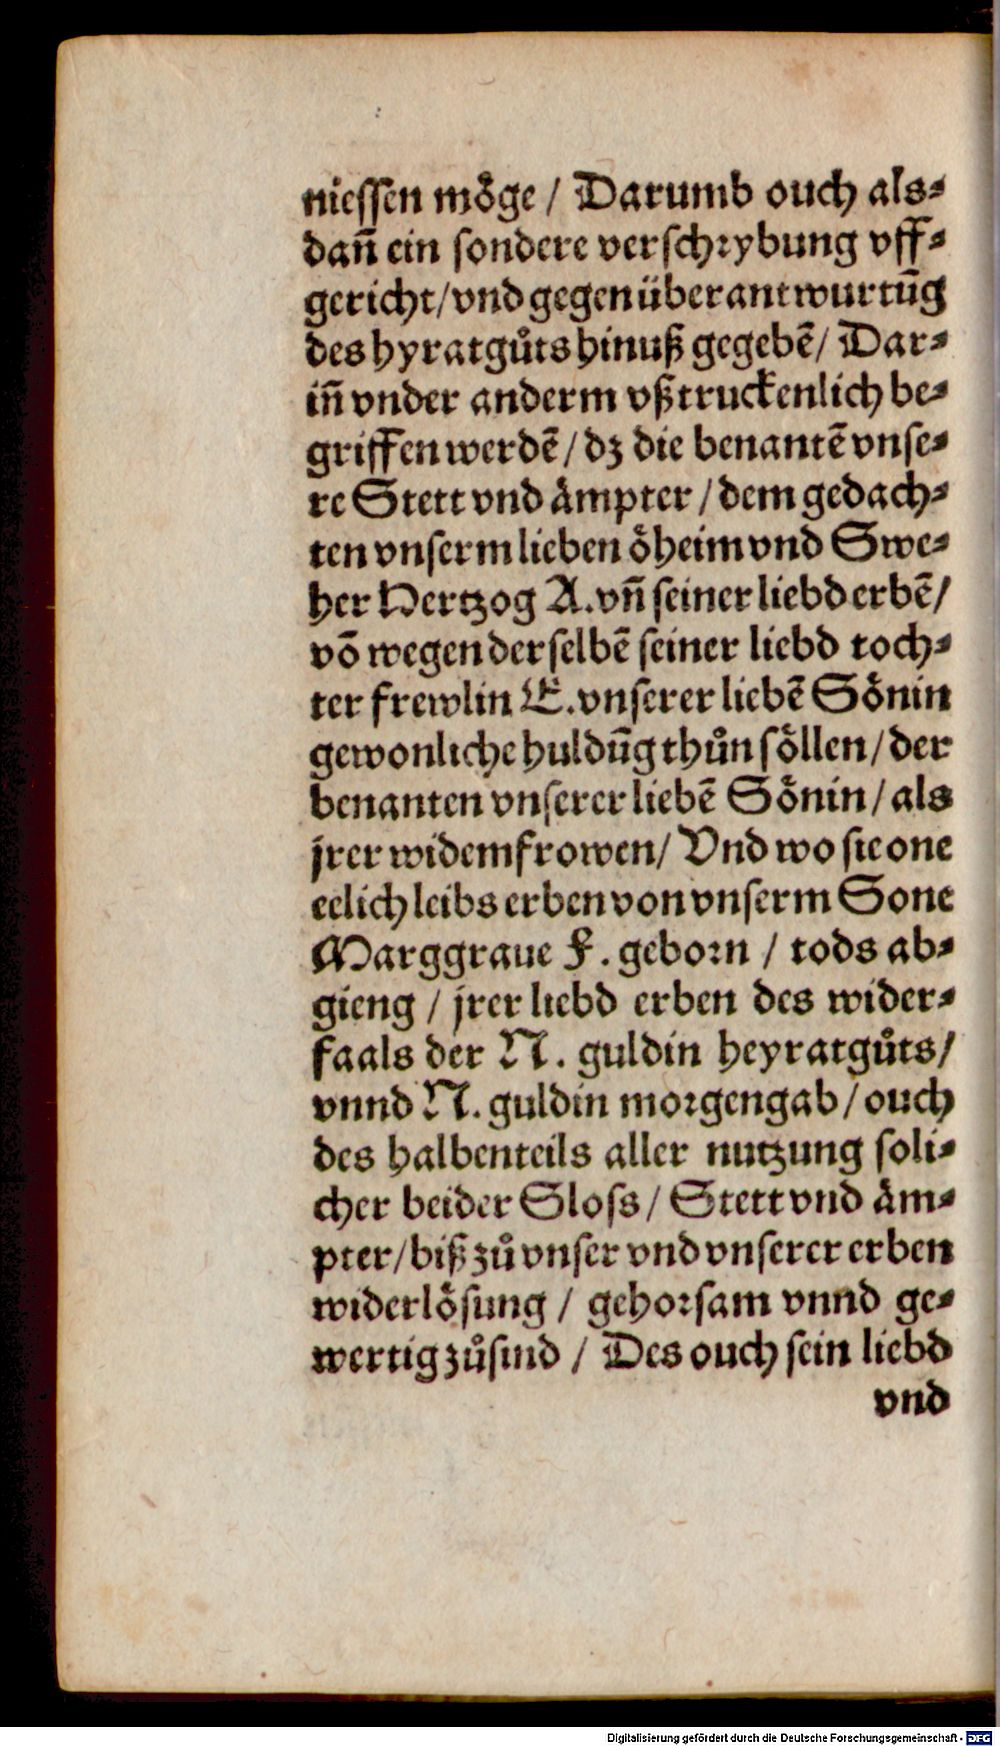 niessen möge / Darumb ouch als⸗
dañ ein sondere verschrybung vff⸗
gericht/vnd gegen überantwurtūg
des hyratgůts hinuß gegebē/ Dar⸗
iñ vnder anderm vßtruckenlich be⸗
griffen werdē/dz die benantē vnse⸗
re Stett vnd ämpter/dem gedach⸗
ten vnserm lieben öheim vnd Swe⸗
her Hertzog A.vñ seiner liebd erbē/
vō wegen derselbē seiner liebd toch⸗
ter frewlin E.vnserer liebē Sönin
gewonliche huldūg thůn söllen/der
benanten vnserer liebē Sönin/als
jrer widemfrowen/ Vnd wo sie one
eelich leibs erben von vnserm Sone
Marggraue F. geborn / tods ab⸗
gieng / jrer liebd erben des wider⸗
faals der N. guldin heyratgůts/
vnnd N. guldin morgengab/ouch
des halbenteils aller nutzung soli⸗
cher beider Sloss/ Stett vnd äm⸗
pter/biß zů vnser vnd vnserer erben
widerlösung / gehorsam vnnd ge⸗
wertig zůsind / Des ouch sein liebd
vnd
Digitalisierung gefördert durch die Deutsche Forschungsgemeinschaft - DFG